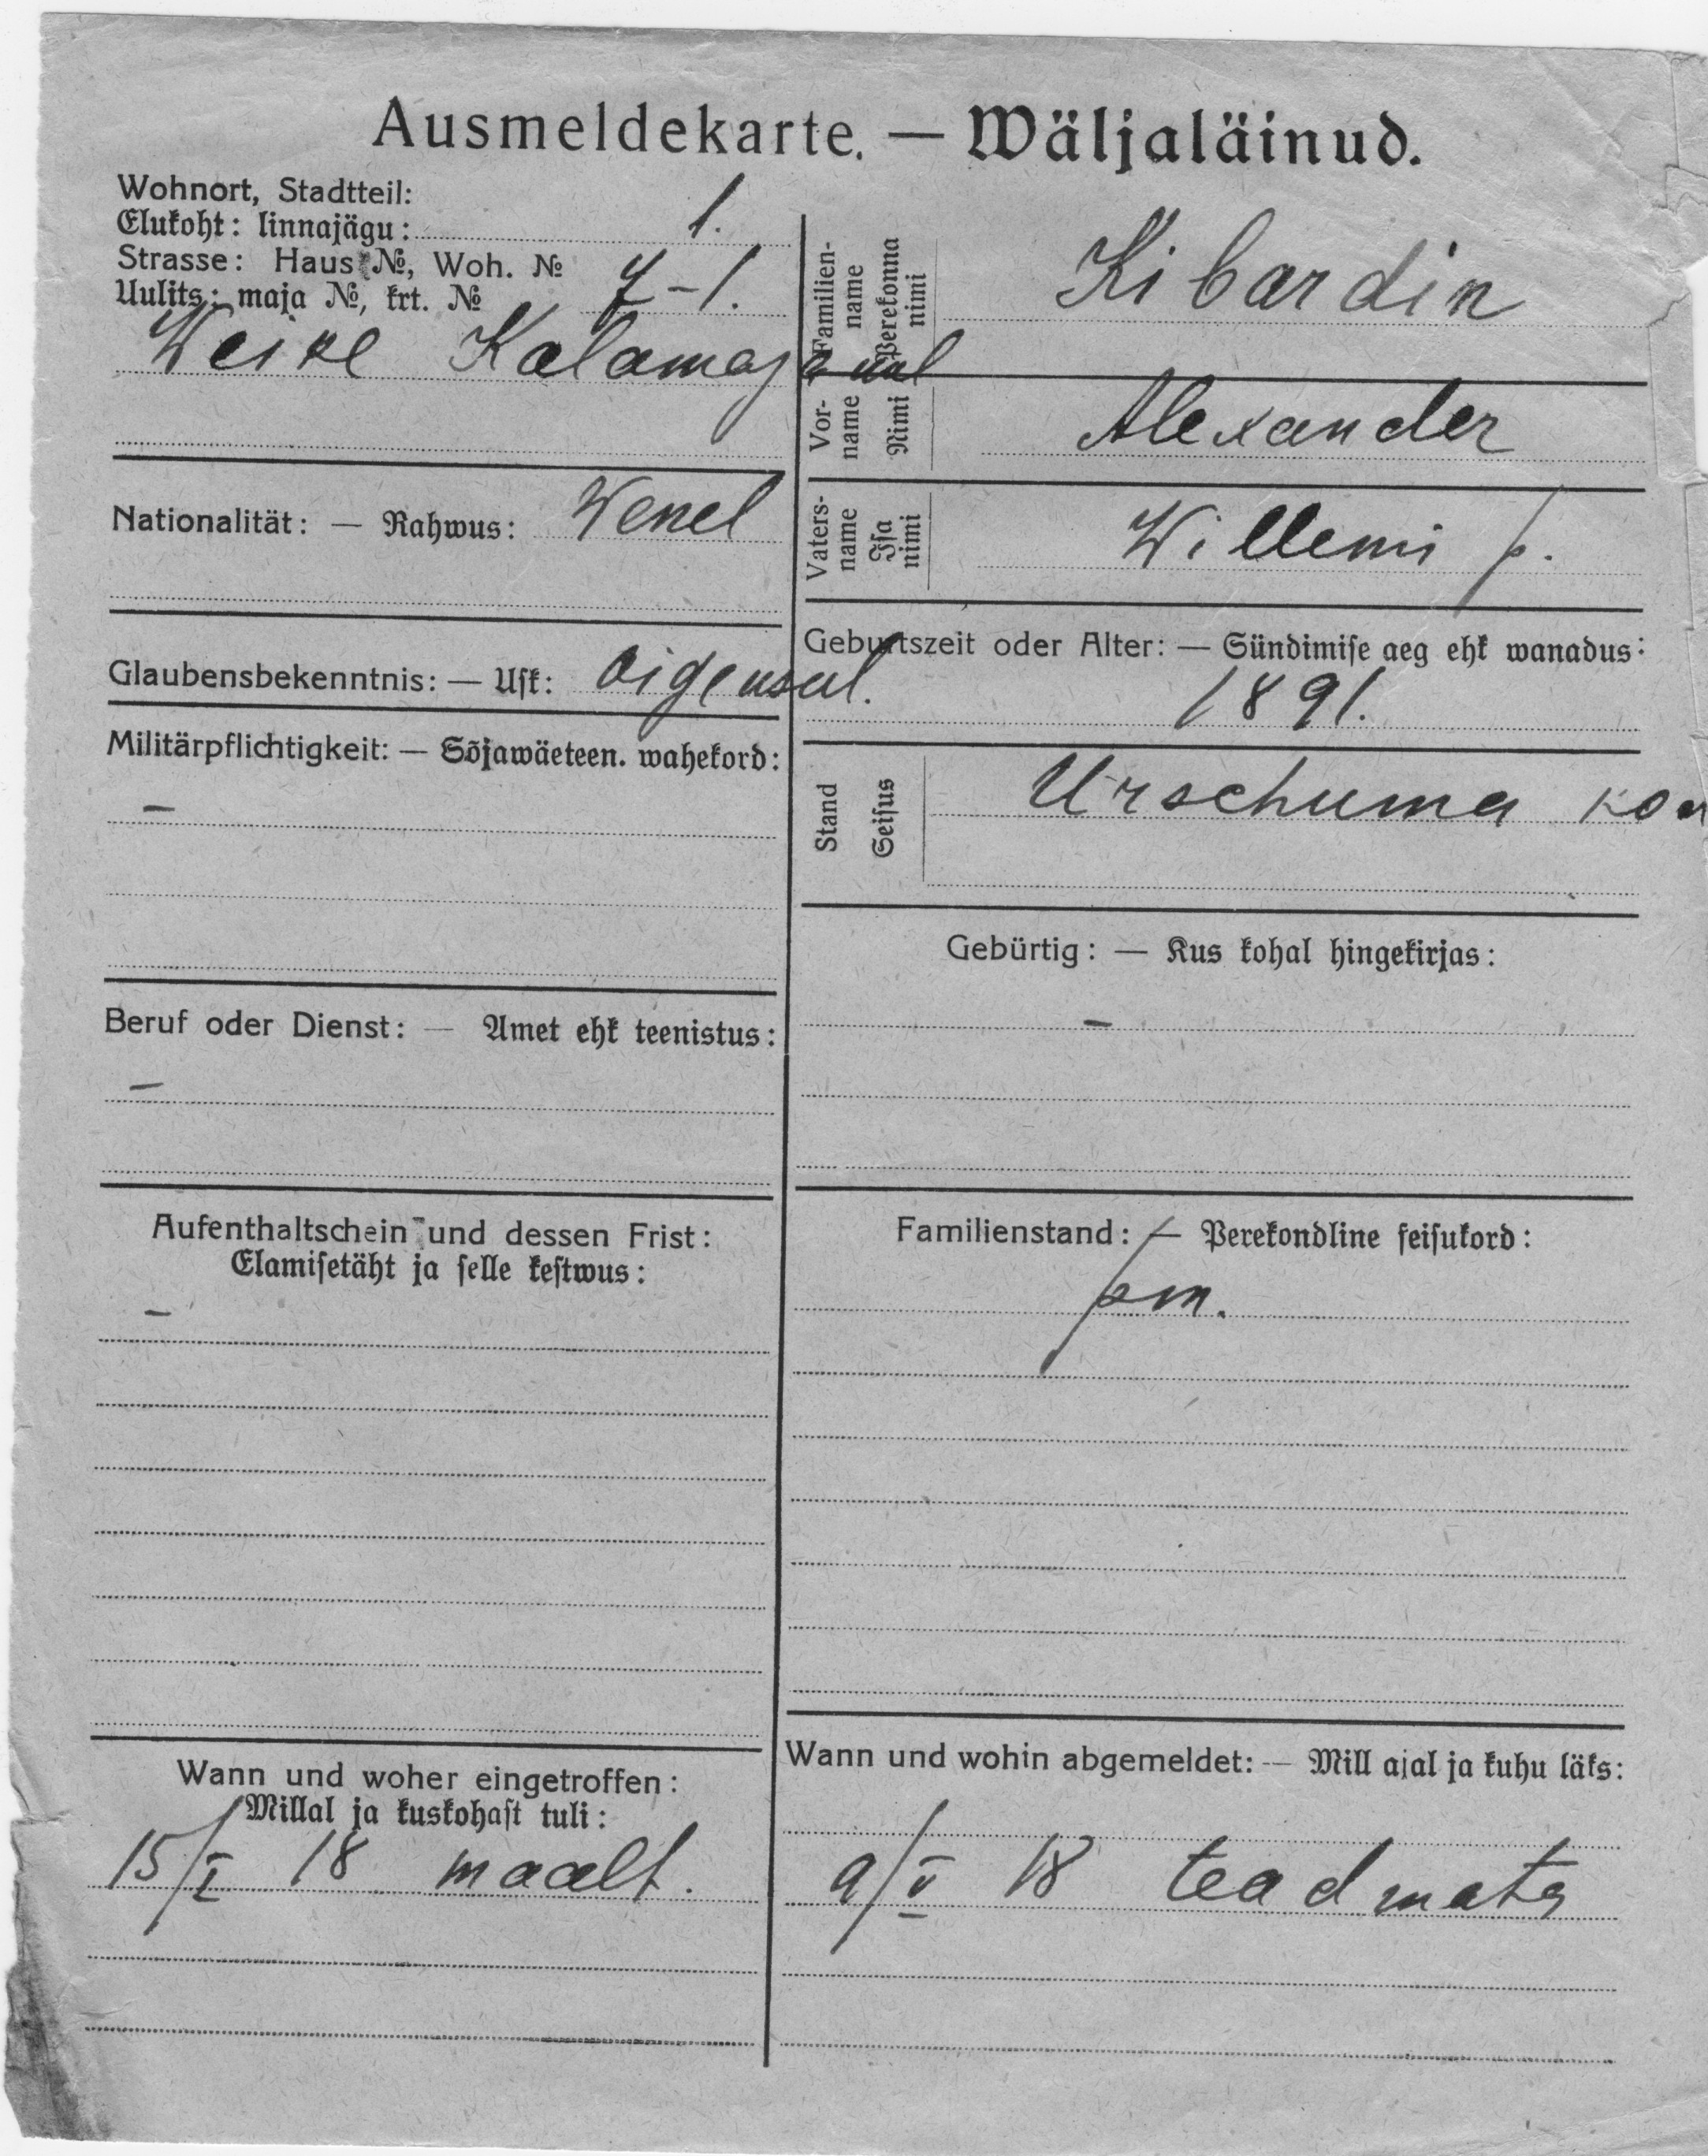 Ausmeldekarte. — Wäljaläinud.
Wohnort, Stadtteil:
Elukoht: linnajägu: 1.
Strasse: Haus №, Woh. №
Uulits: maja №, krt. № 7-1.
Weike Kalamaja uul
Nationalität: — Rahwus: Wenel
Glaubensbekenntnis: — Usk: oigeusul.
Militärpflichtigkeit: — Sõjawäeteen. wahekord:
—
Beruf oder Dienst: — Amet ehk teenistus:
—
Aufenthaltschein und dessen Frist:
Elamisetäht ja selle kestwus:
—
Wann und woher eingetroffen:
Millal ja kuskohast tuli:
15/I 18 maalt.
Familien-
name
Perekonna
nimi
Kibardin
Vor-
name
Nimi
Alexander
Vaters-
name
Isa
nimi
Willemi p.
Geburtszeit oder Alter: — Sündimise aeg ehk wanadus:
1891.
Stand
Seisus
Urschuma
Gebürtig: — Kus kohal hingekirjas:
—
Familienstand: — Perekondline seisukord:
pm.
Wann und wohin abgemeldet: — Mill ajal ja kuhu läks:
9/V 18 teadmata